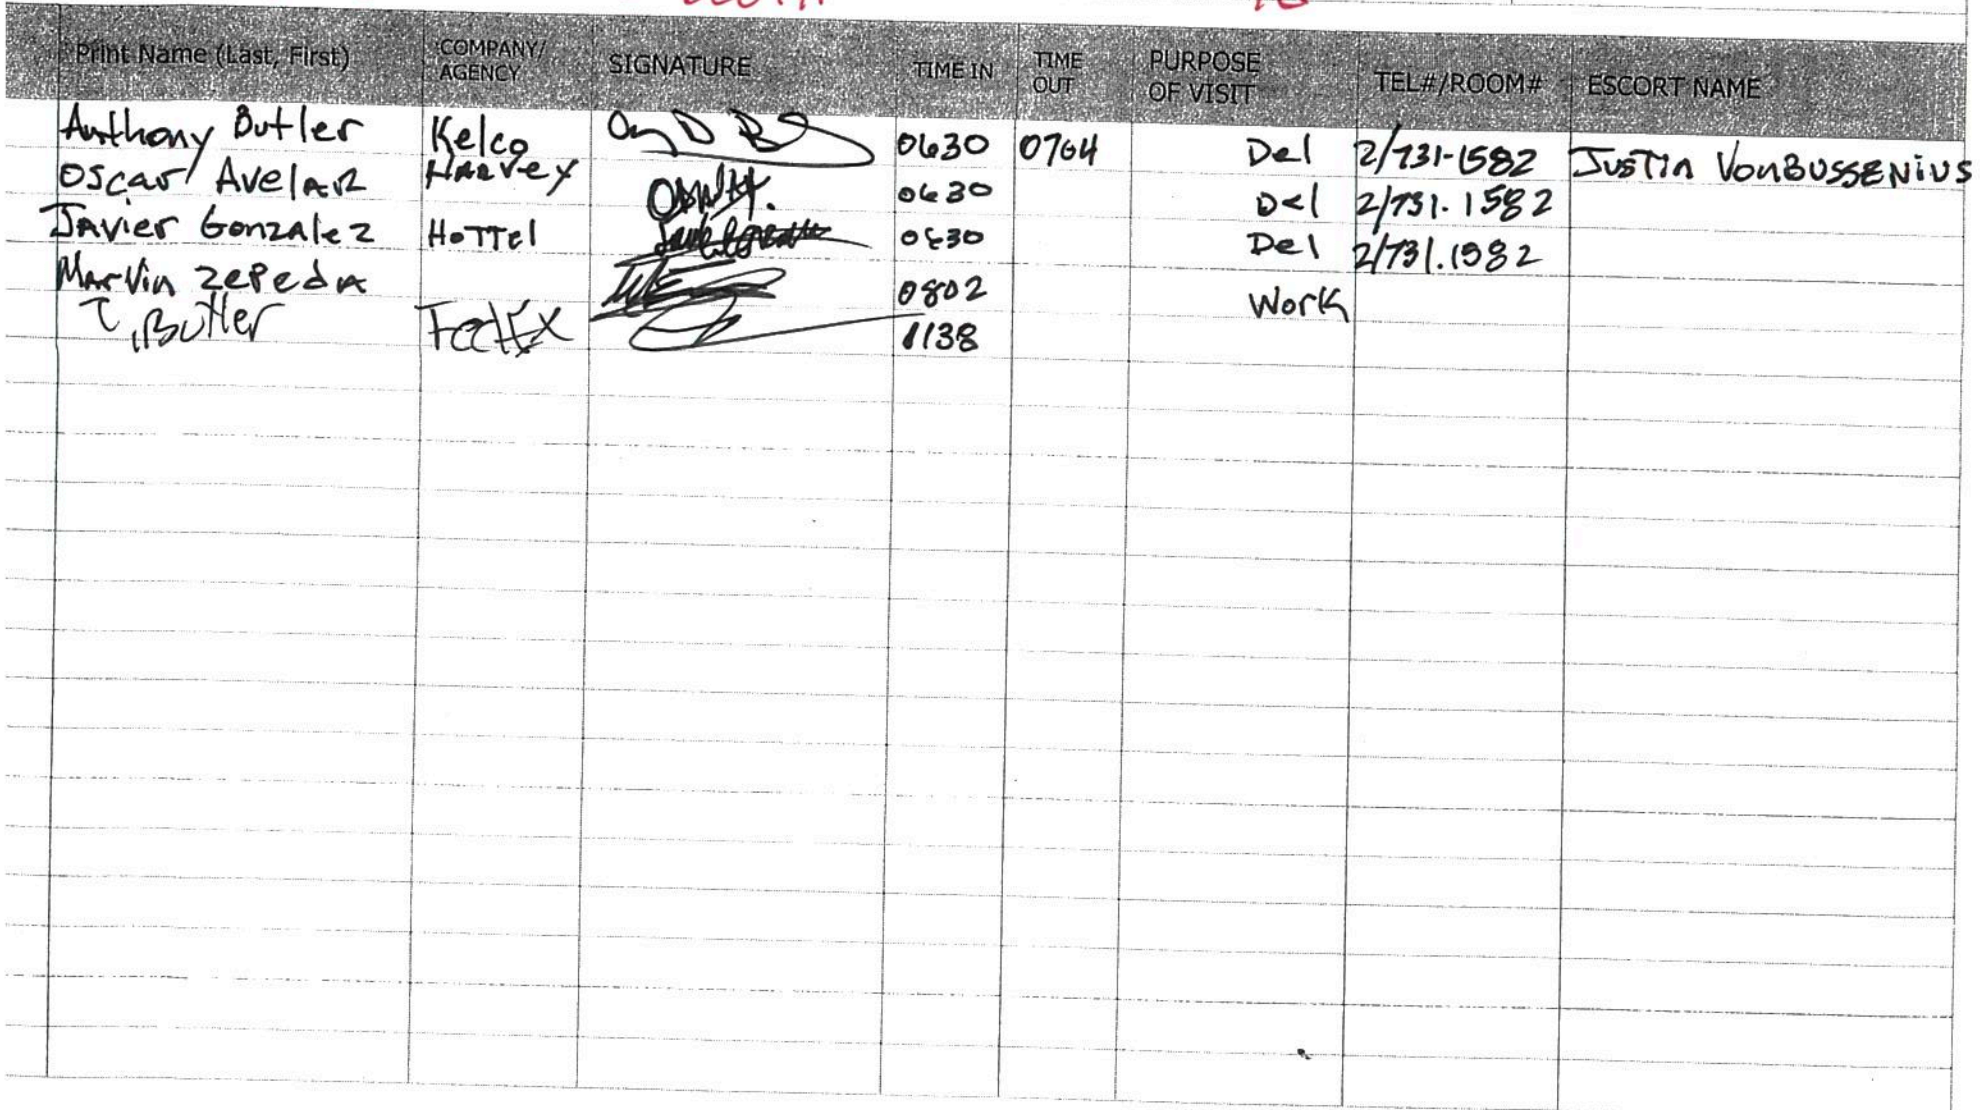 Print Name (Last, First) COMPANY/ AGENCY SIGNATURE TIME IN TIME OUT PURPOSE OF VISIT TEL#/ROOM# ESCORT NAME
Anthony Butler Kelco 0630 0704 Del 2/731-1582 Justin VonBussenius
Oscar Avelar Harvey 0630 Del 2/731.1582
Javier Gonzalez Hottel 0630 Del 2/731.1982
Marvin Zepeda 0802 Work
T. Butler FedEx 1138